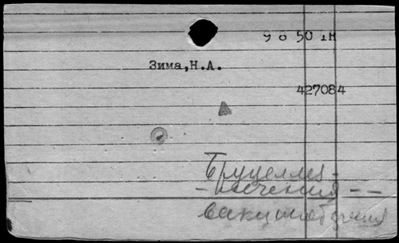 9 8 50 1Н
Зима,Н.А.
427084
Бруцеллез -
- лечение --
вакцинотерапия